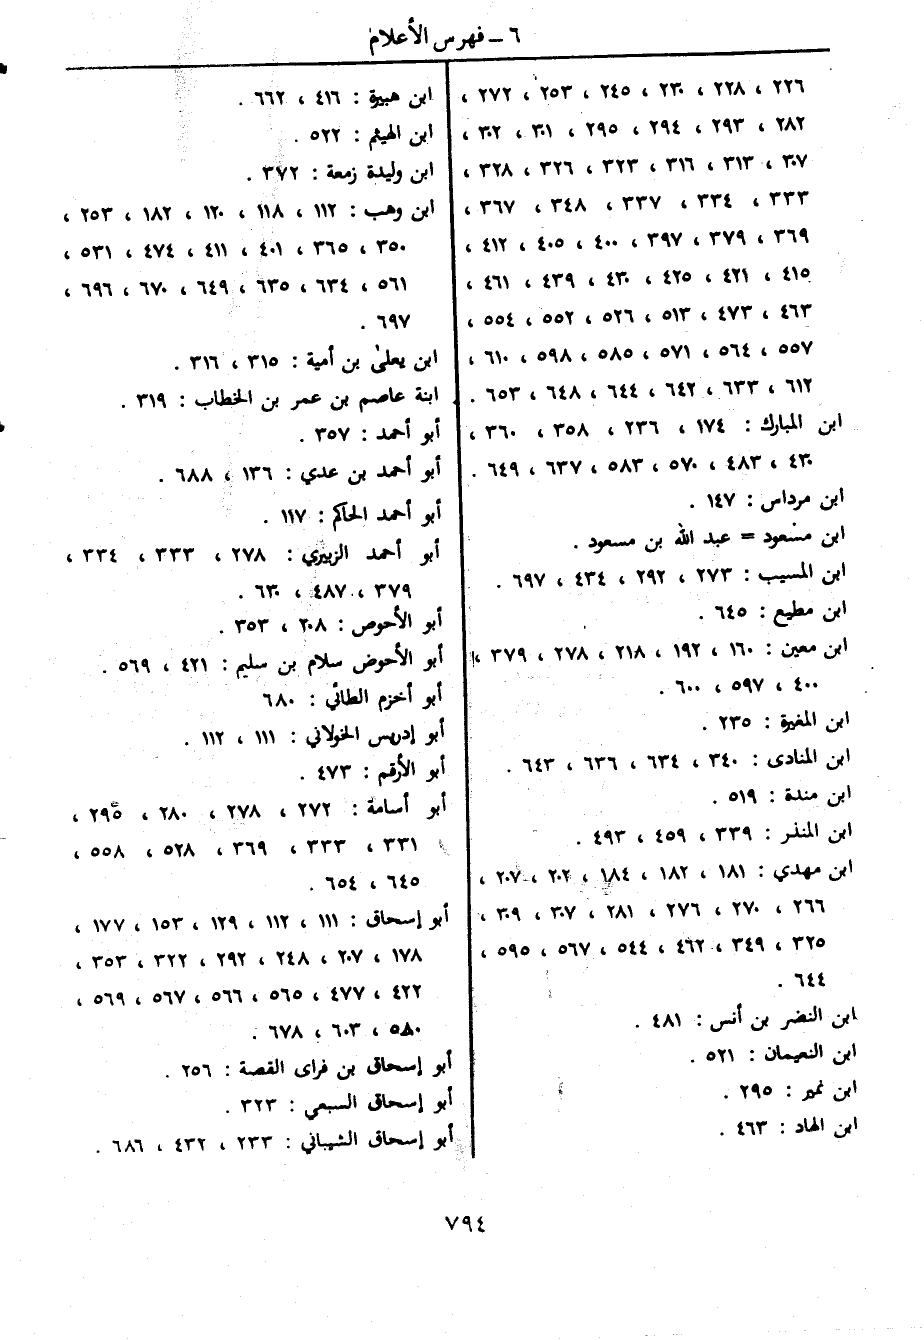 ٦ ــ فهرس الأعلام
٢٢٦ ، ٢٢٨ ، ٢٣٠ ، ٢٤٥ ، ٢٥٣ ، ٢٧٢ ،
٢٨٢ ، ٢٩٣ ، ٢٩٤ ، ٢٩٥ ، ٣٠١ ، ٣٠٢ ،
٣٠٧ ، ٣١٣ ، ٣١٦ ، ٣٢٣ ، ٣٢٦ ، ٣٢٨ ،
٣٣٣ ، ٣٣٤ ، ٣٣٧ ، ٣٤٨ ، ٣٦٧ ،
٣٦٩ ، ٣٧٩ ، ٣٩٧ ، ٤٠٠ ، ٤٠٥ ، ٤١٢ ،
٤١٥ ، ٤٢١ ، ٤٢٥ ، ٤٣٠ ، ٤٣٩ ، ٤٦١ ،
٤٦٣ ، ٤٧٣ ، ٥١٣ ، ٥٢٦ ، ٥٥٢ ، ٥٥٤ ،
٥٥٧ ، ٥٦٤ ، ٥٧١ ، ٥٨٥ ، ٥٩٨ ، ٦١٠ ،
٦١٢ ، ٦٣٣ ، ٦٤٢ ، ٦٤٤ ، ٦٤٨ ، ٦٥٣ .
ابن المبارك : ١٧٤ ، ٢٣٦ ، ٣٥٨ ، ٣٦٠ ،
٤٣٠ ، ٤٨٣ ، ٥٧٠ ، ٥٨٣ ، ٦٣٧ ، ٦٤٩ .
ابن مرداس : ١٤٧ .
ابن مسعود = عبد الله بن مسعود .
ابن المسيب : ٢٧٣ ، ٢٩٢ ، ٤٣٤ ، ٦٩٧ .
ابن مطيع : ٦٤٥ .
ابن معين : ١٦٠ ، ١٩٢ ، ٢١٨ ، ٢٧٨ ، ٣٧٩ ،
٤٠٠ ، ٥٩٧ ، ٦٠٠ .
ابن المغيرة : ٢٣٥ .
ابن المنادى : ٣٤٠ ، ٦٣٤ ، ٦٣٦ ، ٦٤٣ .
ابن مندة : ٥١٩ .
ابن المنذر : ٣٣٩ ، ٤٥٩ ، ٤٩٣ .
ابن مهدي : ١٨١ ، ١٨٢ ، ١٨٤ ، ٢٠٢ ، ٢٠٧ ،
٢٦٦ ، ٢٧٠ ، ٢٧٦ ، ٢٨١ ، ٣٠٧ ، ٣٠٩ ،
٣٢٥ ، ٣٤٩ ، ٤٦٢ ، ٥٤٤ ، ٥٦٧ ، ٥٩٥ ،
٦٤٤ .
ابن النضر بن أنس : ٤٨١ .
ابن النعيمان : ٥٢١ .
ابن نمير : ٢٩٥ .
ابن الهاد : ٤٦٣ .
ابن هبيرة : ٤١٦ ، ٦٦٢ .
ابن الهيثم : ٥٢٢ .
ابن وليدة زمعة : ٣٧٢ .
ابن وهب : ١١٢ ، ١١٨ ، ١٢٠ ، ١٨٢ ، ٢٥٣ ،
٣٥٠ ، ٣٦٥ ، ٤٠١ ، ٤١١ ، ٤٧٤ ، ٥٣١ ،
٥٦١ ، ٦٣٤ ، ٦٣٥ ، ٦٤٩ ، ٦٧٠ ، ٦٩٦ ،
٦٩٧ .
ابن يعلىٰ بن أمية : ٣١٥ ، ٣١٦ .
ابنة عاصم بن عمر بن الخطاب : ٣١٩ .
أبو أحمد : ٣٥٧ .
أبو أحمد بن عدي : ١٣٦ ، ٦٨٨ .
أبو أحمد الحاكم : ١١٧ .
أبو أحمد الزبيري : ٢٧٨ ، ٣٣٣ ، ٣٣٤ ،
٣٧٩ ، ٤٨٧ ، ٦٣٠ .
أبو الأحوص : ٢٠٨ ، ٣٥٣ .
أبو الأحوض سلام بن سليم : ٤٢١ ، ٥٦٩ .
أبو أخزم الطائي : ٦٨٠
أبو إدريس الخولاني : ١١١ ، ١١٢ .
أبو الأرقم : ٤٧٣ .
أبو أسامة : ٢٧٢ ، ٢٧٨ ، ٢٨٠ ، ٢٩٥ ،
٣٣١ ، ٣٣٣ ، ٣٦٩ ، ٥٢٨ ، ٥٥٨ ،
٦٤٥ ، ٦٥٤ .
أبو إسحاق : ١١١ ، ١١٢ ، ١٢٩ ، ١٥٣ ، ١٧٧ ،
١٧٨ ، ٢٠٧ ، ٢٤٨ ، ٢٩٢ ، ٣٢٢ ، ٣٥٣ ،
٤٢٢ ، ٤٧٧ ، ٥٦٥ ، ٥٦٦ ، ٥٦٧ ، ٥٦٩ ،
٥٨٠ ، ٦٠٣ ، ٦٧٨ .
أبو إسحاق بن فراى القصة : ٢٥٦ .
أبو إسحاق السبعي : ٣٢٣ .
أبو إسحاق الشيباني : ٢٣٣ ، ٤٣٢ ، ٦٨٦ .
٧٩٤